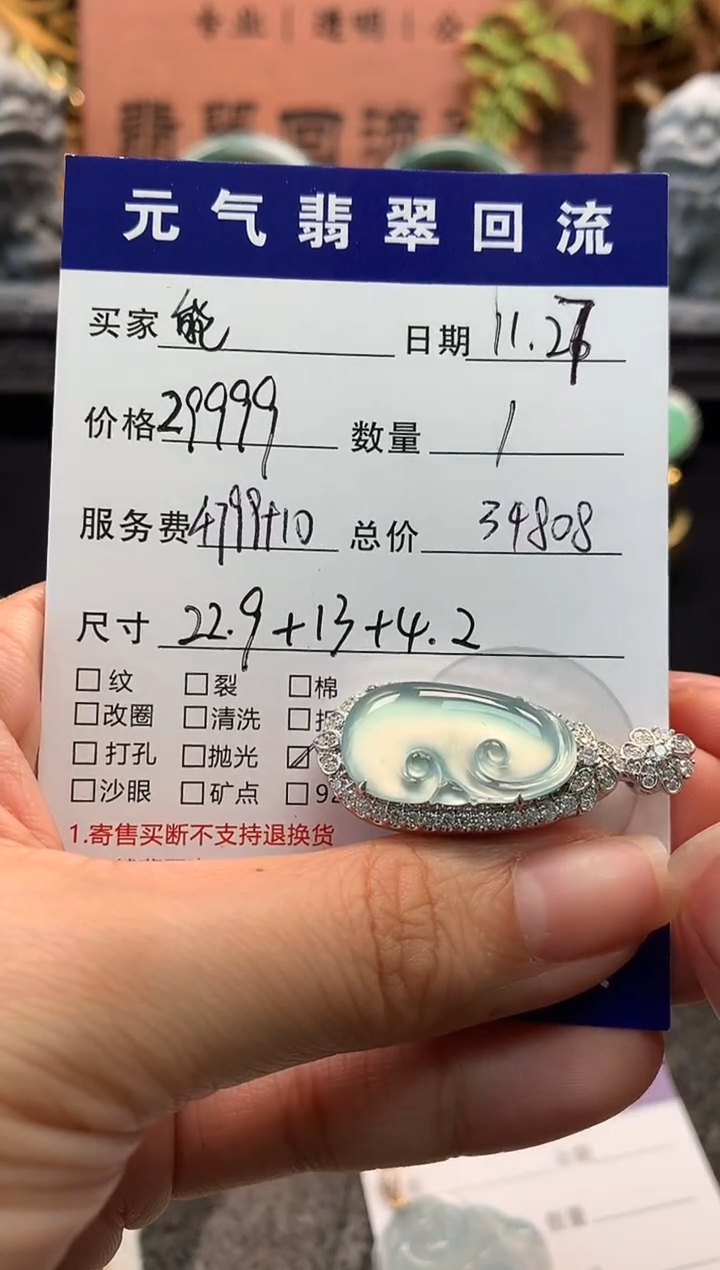 专业 | 透明 | 公
翡翠回流
元气翡翠回流
买家 能 日期 11.27
价格 29999 数量 1
服务费 4799+10 总价 34808
尺寸 22.9+13+4.2
□纹 □裂 □棉
□改圈 □清洗
□打孔 □抛光
□沙眼 □矿点 □92
1.寄售买断不支持退换货